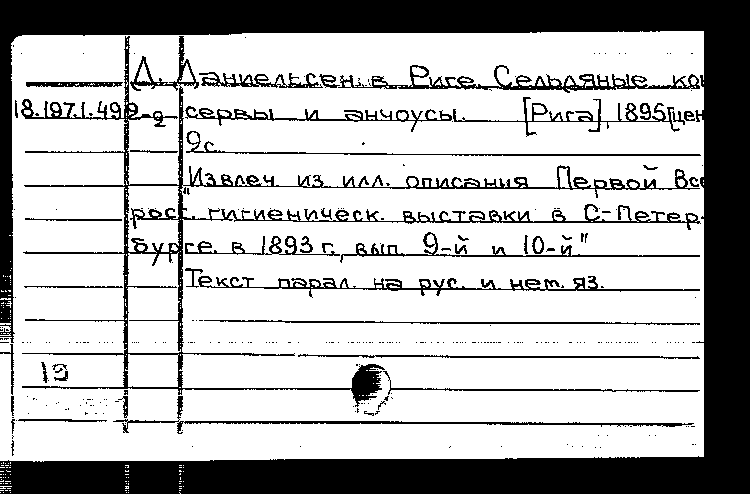 Д. Даниельсен в Риге. Сельдяные кон
18.197.1.499-2 сервы и анчоусы. [Рига], 1895 [цен
9с.
"Извлеч. из илл. описания Первой Все
росс. гигиеническ. выставки в С-Петер-
бурге. в 1893 г., вып. 9-й и 10-й."
Текст парал. на рус. и нем. яз.
19